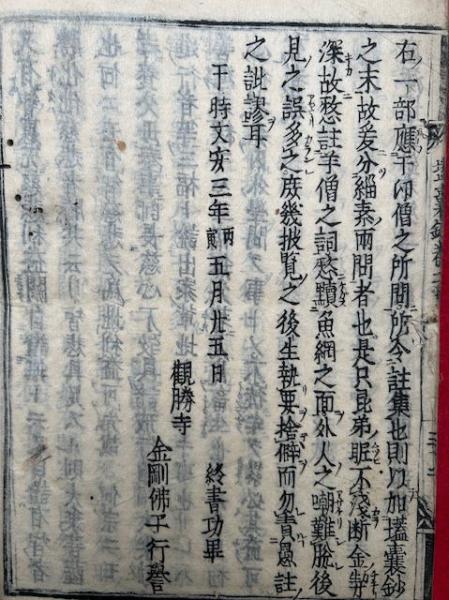 右一部應干印僧之所問所令註集也則以加壒囊鈔
之末故爰分緇素兩問者也是只昆弟眤不淺断金勢
深故愁註羊僧之詞慭黷魚網之面外人之嘲難脫後
見之誤多之庶幾披覧之後生執要捨僻而勿責愚註
之訛謬耳
于時文安三年丙寅五月廿五日 終書功畢
觀勝寺
金剛佛子行譽